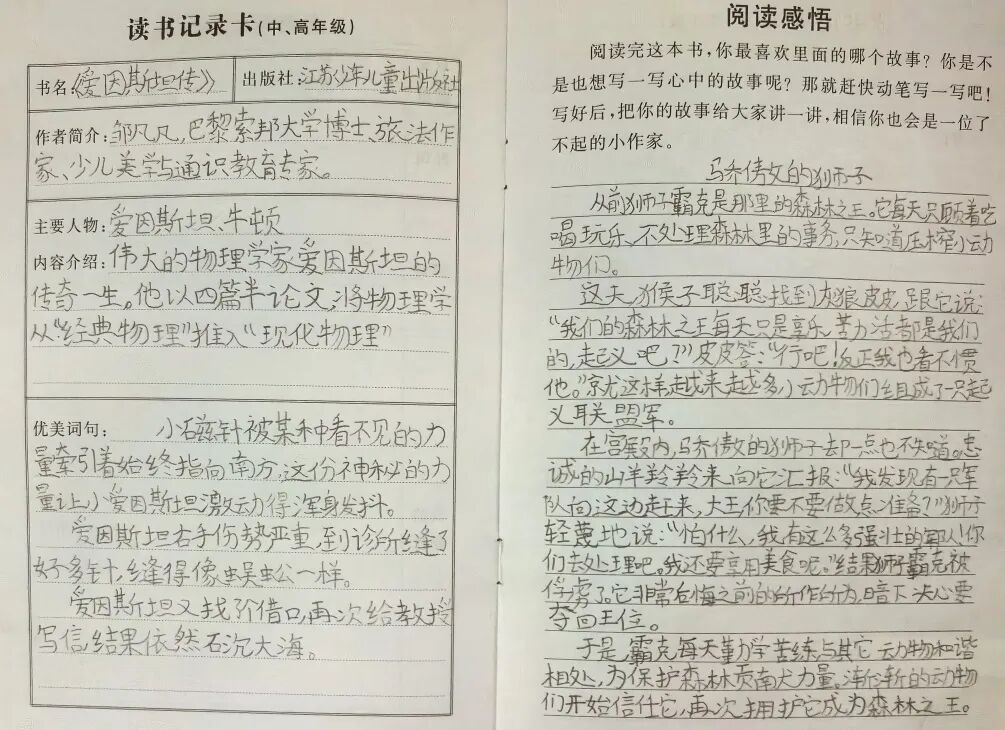 读书记录卡(中、高年级)
书名:《爱因斯坦传》 出版社:江苏少年儿童出版社
作者简介:邹凡凡,巴黎索邦大学博士、旅法作
家、少儿美学与通识教育专家。
主要人物:爱因斯坦、牛顿
内容介绍:伟大的物理学家爱因斯坦的
传奇一生。他以四篇半论文,将物理学
从“经典物理”推入“现化物理”
优美词句: 小磁针被某种看不见的力
量牵引着始终指向南方,这份神秘的力
量让小爱因斯坦激动得浑身发抖。
爱因斯坦右手伤势严重,到诊所缝了
好多针,缝得像蜈蚣一样。
爱因斯坦又找了个借口,再次给教授
写信,结果依然石沉大海。
阅读感悟
阅读完这本书,你最喜欢里面的哪个故事?你是不
是也想写一写心中的故事呢?那就赶快动笔写一写吧!
写好后,把你的故事给大家讲一讲,相信你也会是一位了
不起的小作家。
马乔傲的狮子
从前狮子霸克是那里的森林之王。它每天只顾着吃
喝玩乐、不处理森林里的事务,只知道压榨小动
物们。
这天,猴子聪聪找到灰狼皮皮,跟它说:
“我们的森林之王每天只是享乐,苦力活都是我们
的,起义吧?”皮皮答:“行吧!反正我也看不惯
他。”就这样,越来越多小动物们组成了一只起
义联盟军。
在宫殿内,马乔傲的狮子却一点也不知道。忠
诚的山羊羚羚来向它汇报:“我发现有一只军
队向这边走来,大王,你要不要做点准备?”狮子
轻蔑地说:“怕什么,我有这么多强壮的军队!你
们去处理吧。我还要享用美食呢。”结果狮子霸克被
俘虏了,它非常后悔之前的所作所为,暗下决心要
夺回王位。
于是,霸克每天勤学苦练与其它动物和谐
相处,为保护森林贡献力量,渐渐的动物
们开始信任它,再次拥护它成为森林之王。